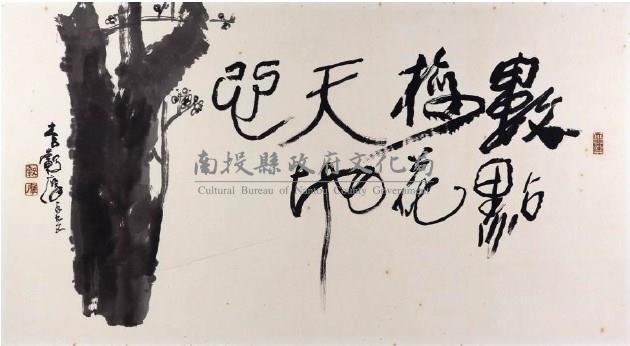 數點
梅花
天地
心
李轂摩
南投縣政府文化局
Cultural Bureau of Nantou County Government